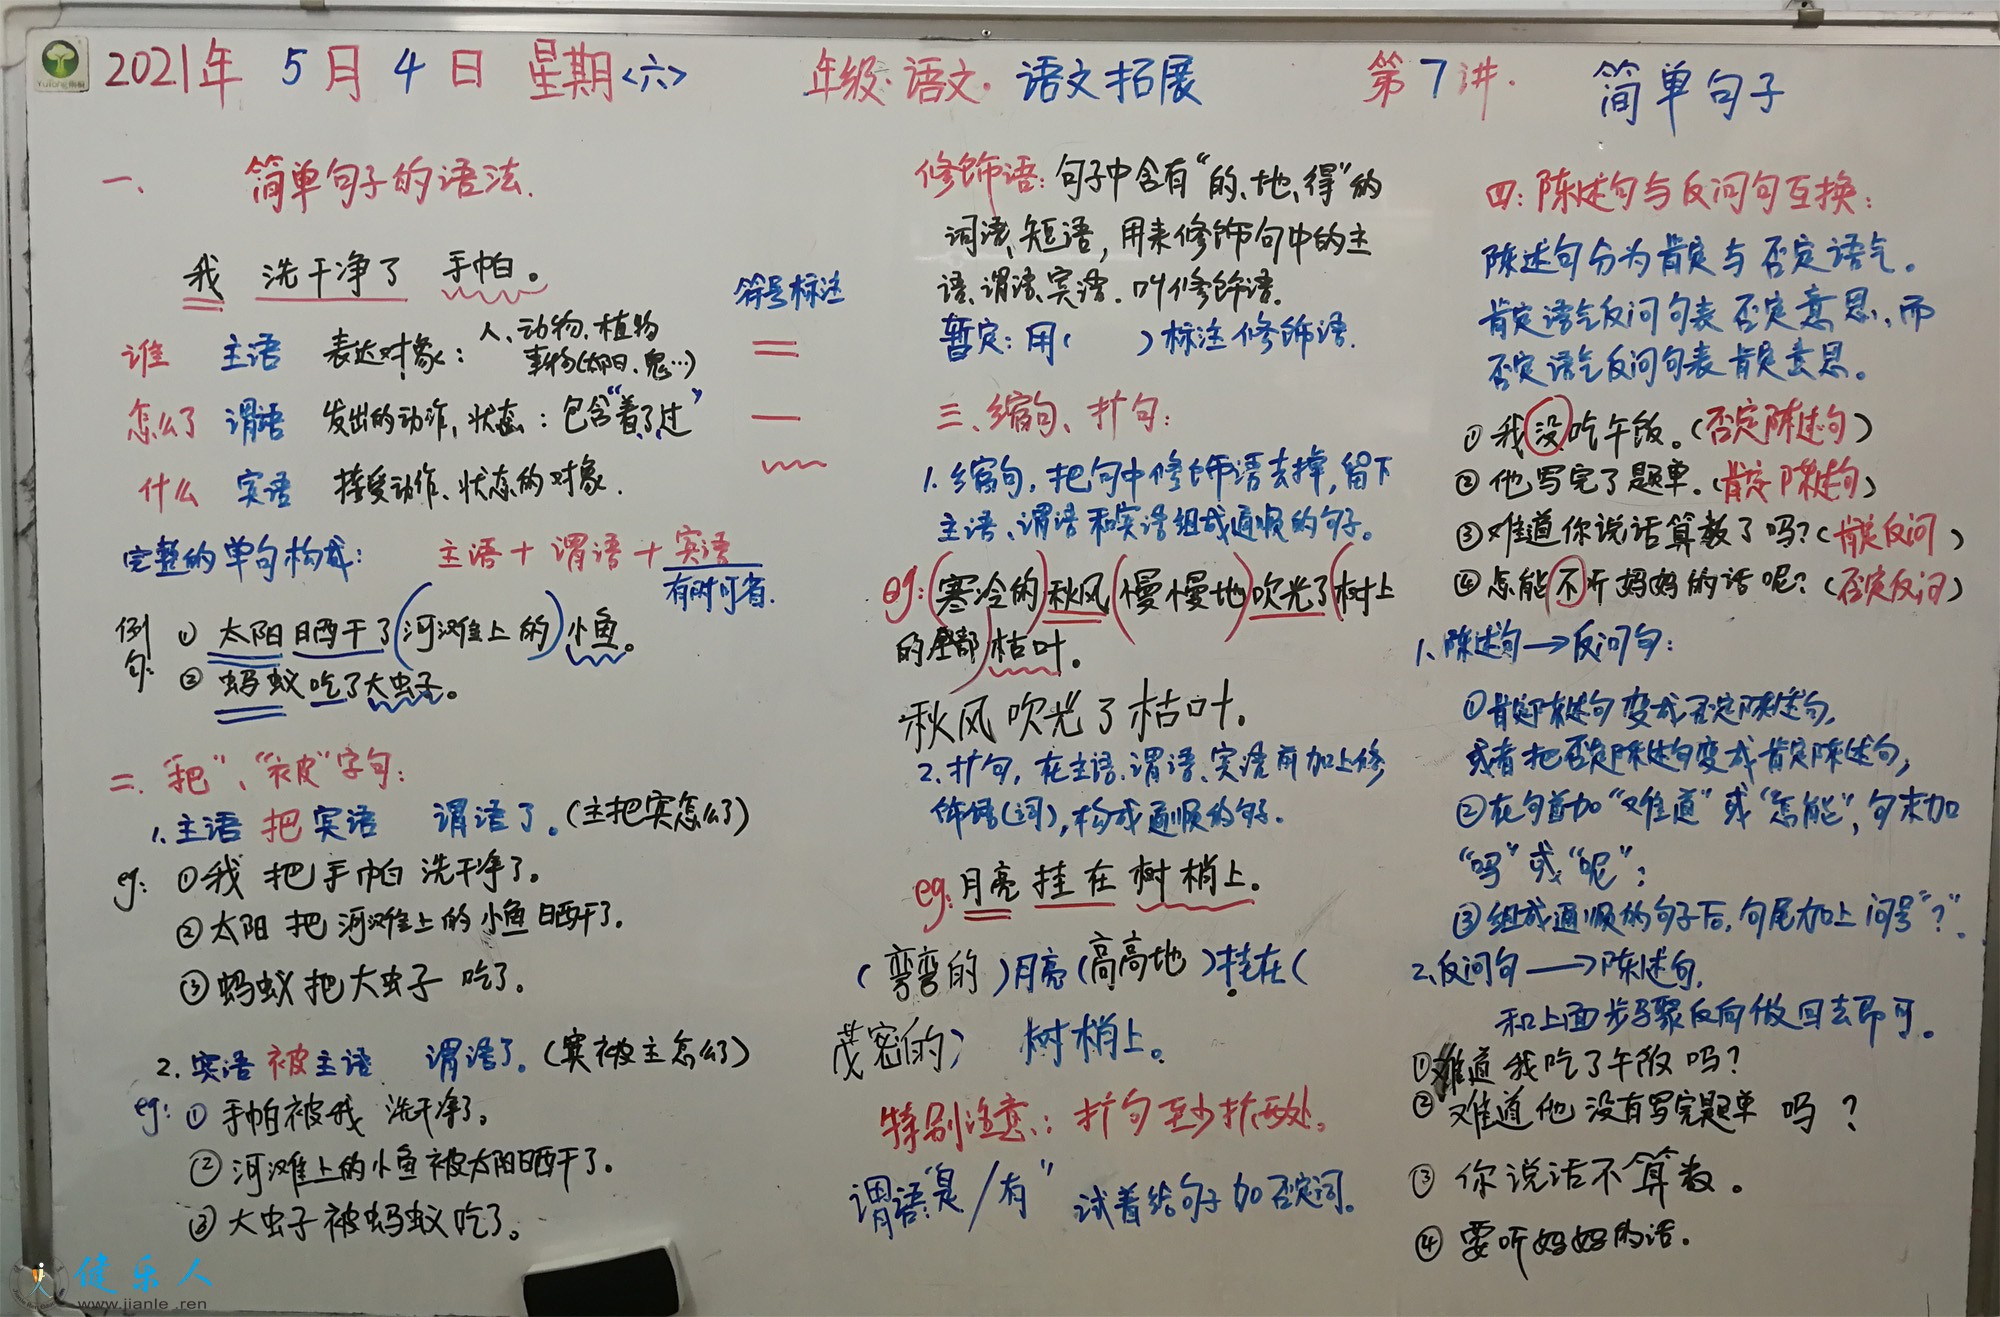 2021年 5月4日 星期<六> 年级·语文·语文拓展 第7讲· 简单句子
一、 简单句子的语法.
我 洗干净了 手帕。
符号标注
谁 主语 表达对象：人、动物、植物
事物(太阳、鬼…)
怎么了 谓语 发出的动作，状态：包含“着了过”
什么 宾语 接受动作、状态的对象.
完整的单句构成： 主语+谓语+宾语
有时可省.
例句：
① 太阳晒干了(河滩上的)小鱼。
② 蚂蚁吃了大虫子。
二、“把”、“被”字句：
1.主语 把 宾语 谓语了。(主把宾怎么了)
eg: ①我 把手帕 洗干净了。
②太阳 把 河滩上的小鱼晒干了.
③蚂蚁把大虫子 吃了。
2.宾语 被主语 谓语了.(宾被主怎么了)
eg: ① 手帕被我 洗干净了。
② 河滩上的小鱼被太阳晒干了.
③ 大虫子被蚂蚁吃了。
修饰语：句子中含有“的、地、得”的
词语、短语，用来修饰句中的主
语、谓语、宾语.叫修饰语.
暂定：用( )标注修饰语.
三、缩句、扩句：
1.缩句，把句中修饰语去掉，留下
主语、谓语和宾语组成通顺的句子。
eg:(寒冷的)秋风(慢慢地)吹光了(树上
的全部)枯叶。
秋风吹光了枯叶.
2.扩句，在主语、谓语、宾语前加上修
饰语(词)，构成通顺的句子.
eg:月亮 挂在 树梢上。
(弯弯的)月亮(高高地)挂在(
茂密的) 树梢上。
特别注意：扩句至少扩两处。
谓语“是/有” 试着给句子加否定词。
四：陈述句与反问句互换：
陈述句分为肯定与否定语气。
肯定语气反问句表否定意思，而
否定语气反问句表肯定意思。
① 我没吃午饭。(否定陈述句)
② 他写完了题单.(肯定陈述句)
③ 难道你说话算数了吗？(肯定反问)
④ 怎能不听妈妈的话呢？(否定反问)
1、陈述句→反问句：
①肯定陈述句变成否定陈述句，
或者把否定陈述句变成肯定陈述句；
②在句首加“难道”或“怎能”，句末加
“吗”或“呢”；
③组成通顺的句子后，句尾加上问号“？”.
2.反问句→陈述句，
和上面步骤反向做回去即可。
①难道我吃了午饭吗？
② 难道他没有写完题单吗？
③ 你说话不算数。
④ 要听妈妈的话.
健乐人
www.jianle.ren